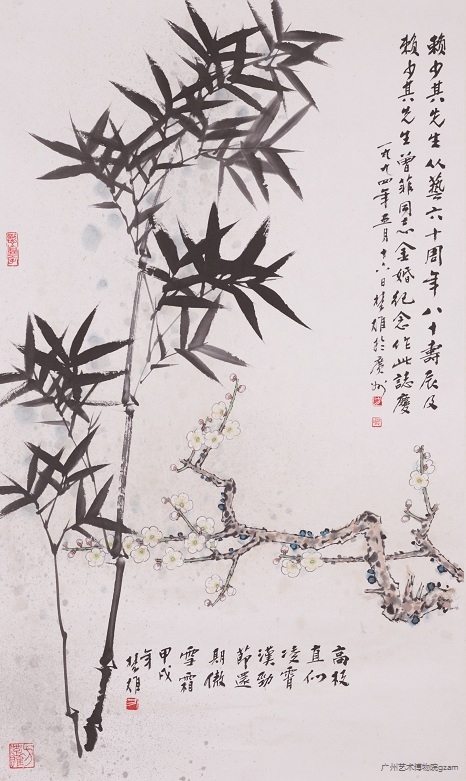 賴少其先生从藝六十周年八十壽辰及
賴少其先生曾菲同志金婚纪念作此誌慶
一九九四年五月十八日楚雄於廣州
高枝
直似
凌霄
漢勁
節還
期傲
雪霜
甲戌
年
楚雄
广州艺术博物院gzam